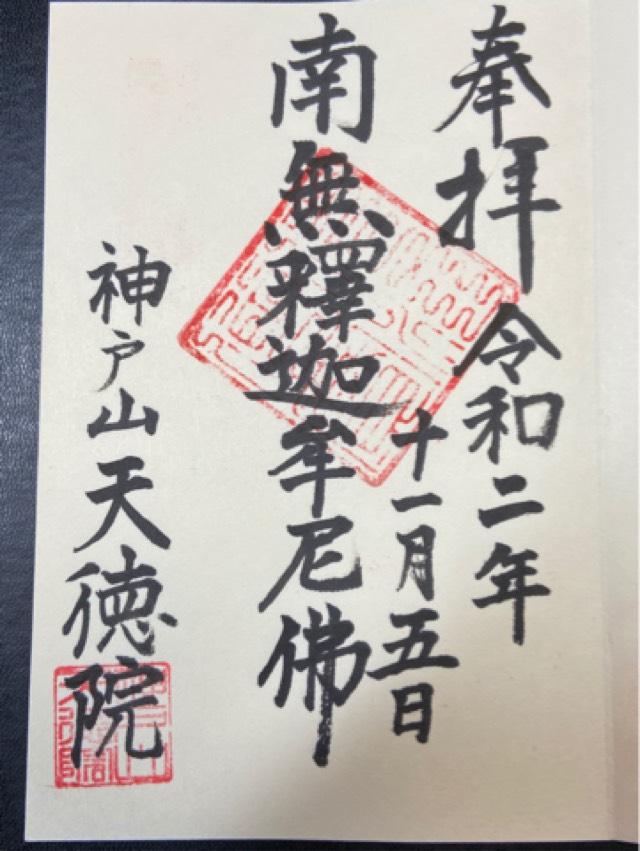 奉拝 令和二年
十一月五日
南無釋迦牟尼佛
神戸山天徳院